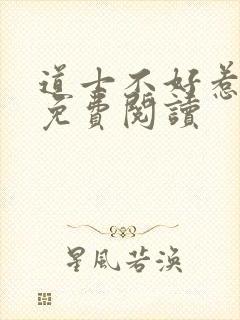 道士不好惹
免費閱讀
星風若渙